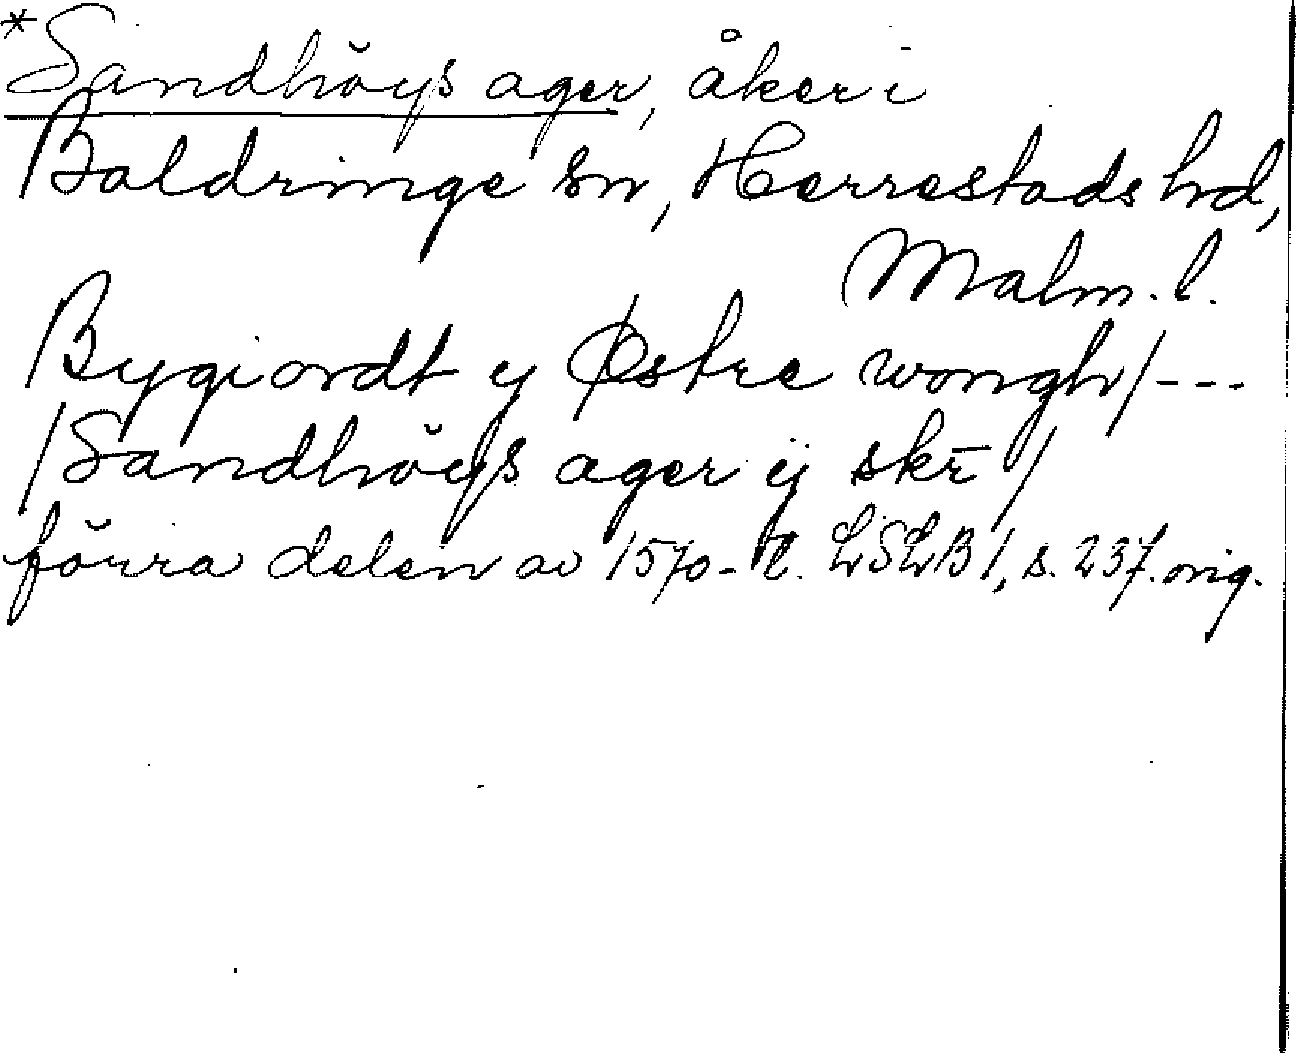 *Sandhöys ager, åker i
Baldringe sn, Herrestads hd,
Malm. l.
Bygiordt y Østre wongh/---
/Sandhöys ager ÿ skr̄/
förra delen av 1570-t. LSLB 1, s. 237. orig.